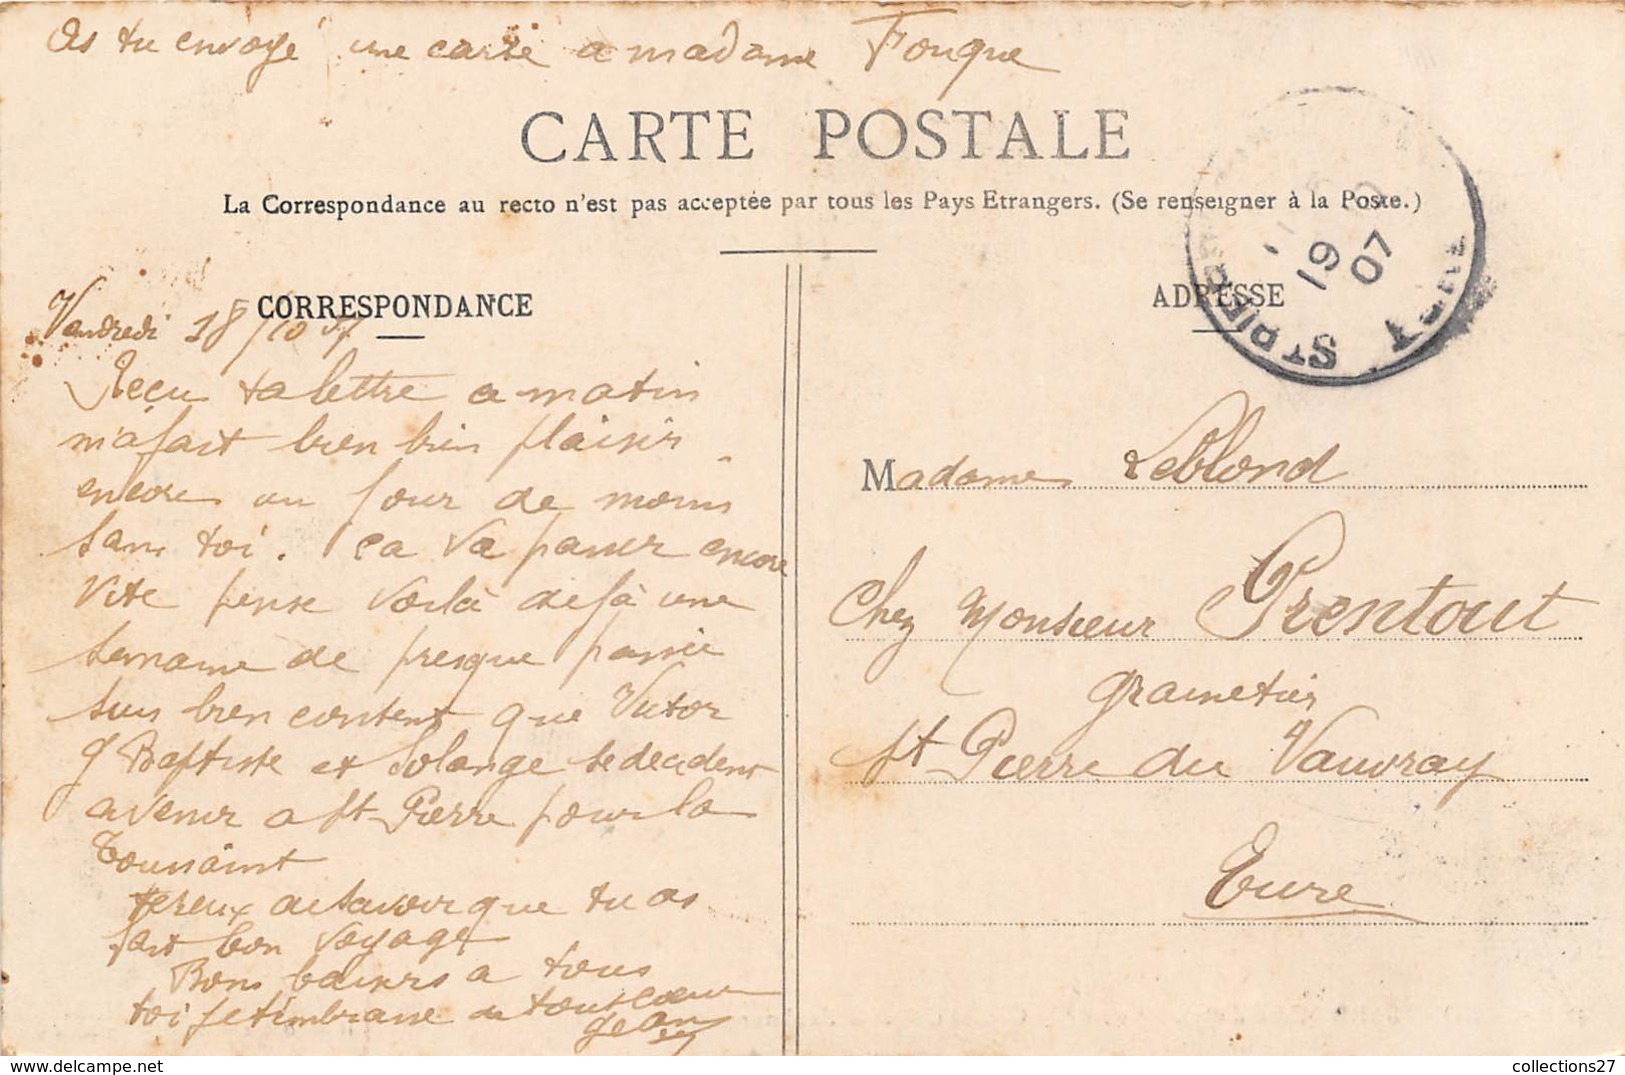 As tu envoyé une carte a madame Fouque
CARTE POSTALE
La Correspondance au recto n'est pas acceptée par tous les Pays Etrangers. (Se renseigner à la Poste.)
CORRESPONDANCE
Vendredi 18/10 07
Reçu ta lettre ce matin
m'a fait bien bien plaisir
encore un jour de moins
sans toi. ca va passer encore
vite pense voilà déjà une
semaine de presque passée
suis bien content que Victor
J Baptiste et Solange se decident
a venir a St Pierre pour la
Toussaint
hereux de savoir que tu as
fait bon voyage
Bons baisers a tous
toi je t'embrasse de tout coeur
Jean
ADRESSE
19
07
ST PIERRE
Madame Leblond
Chez Monsieur Prentout
grainetier
St Pierre du Vauvray
Eure
collections27